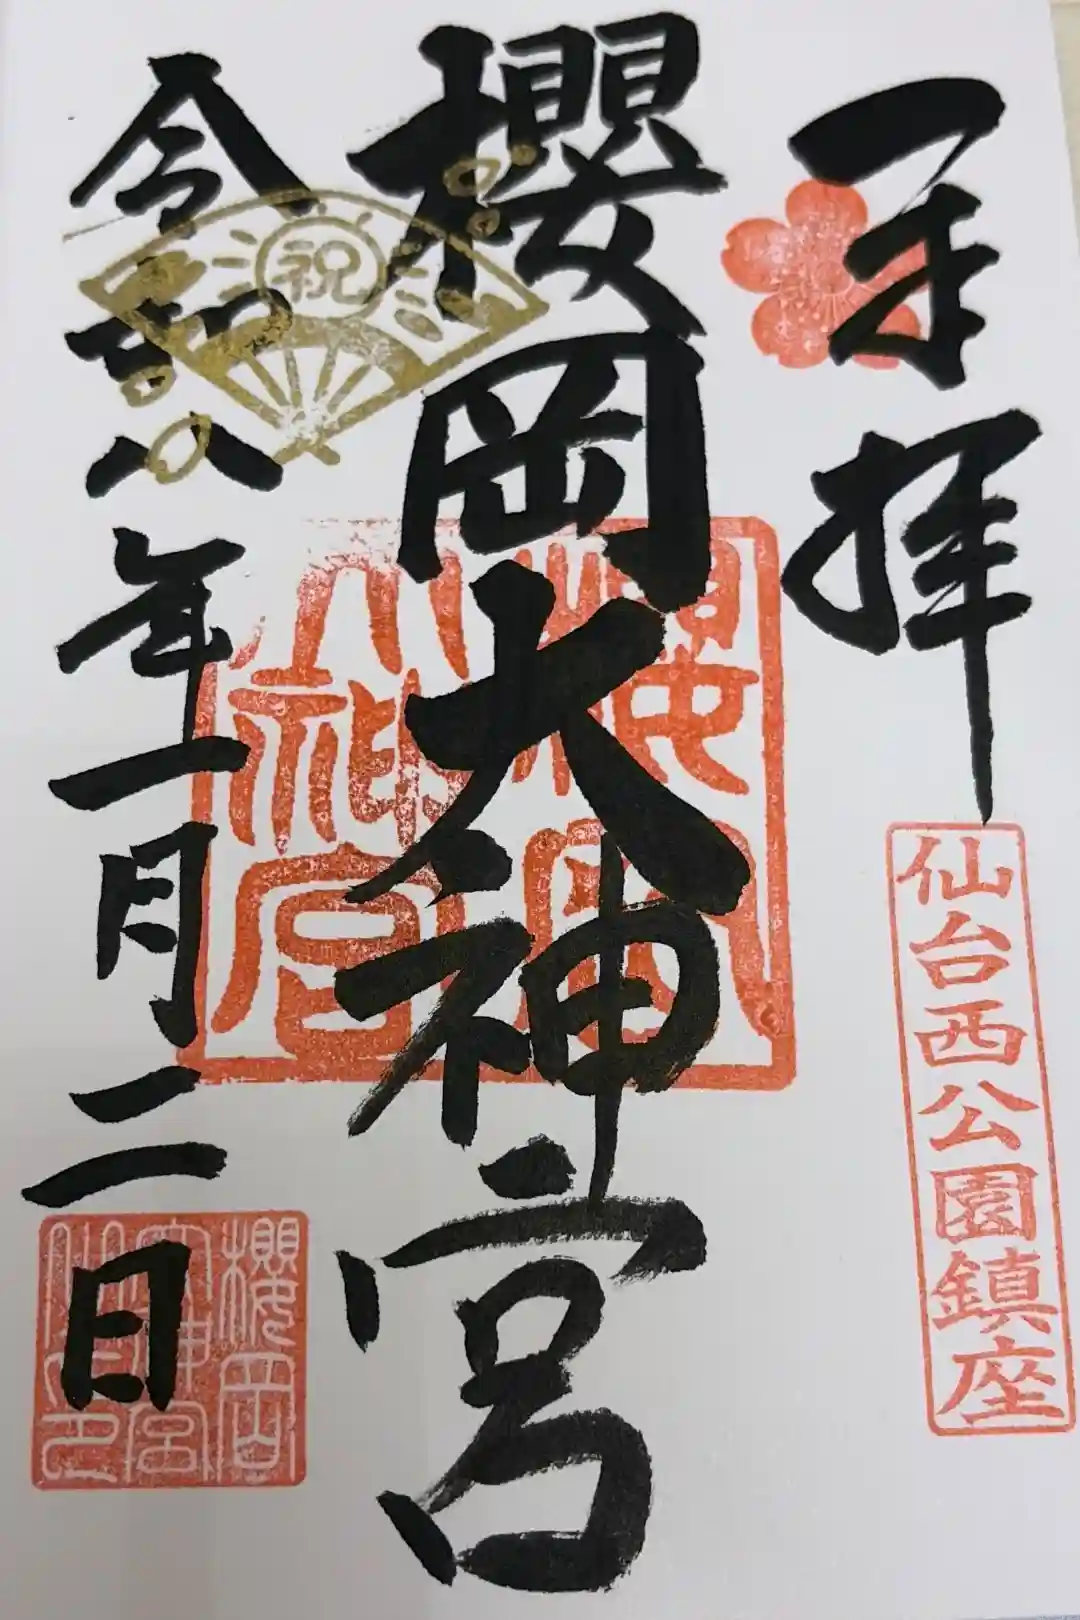 奉拝
仙台西公園鎮座
櫻岡大神宮
櫻岡大神宮
祝
令和八年一月二日
櫻岡